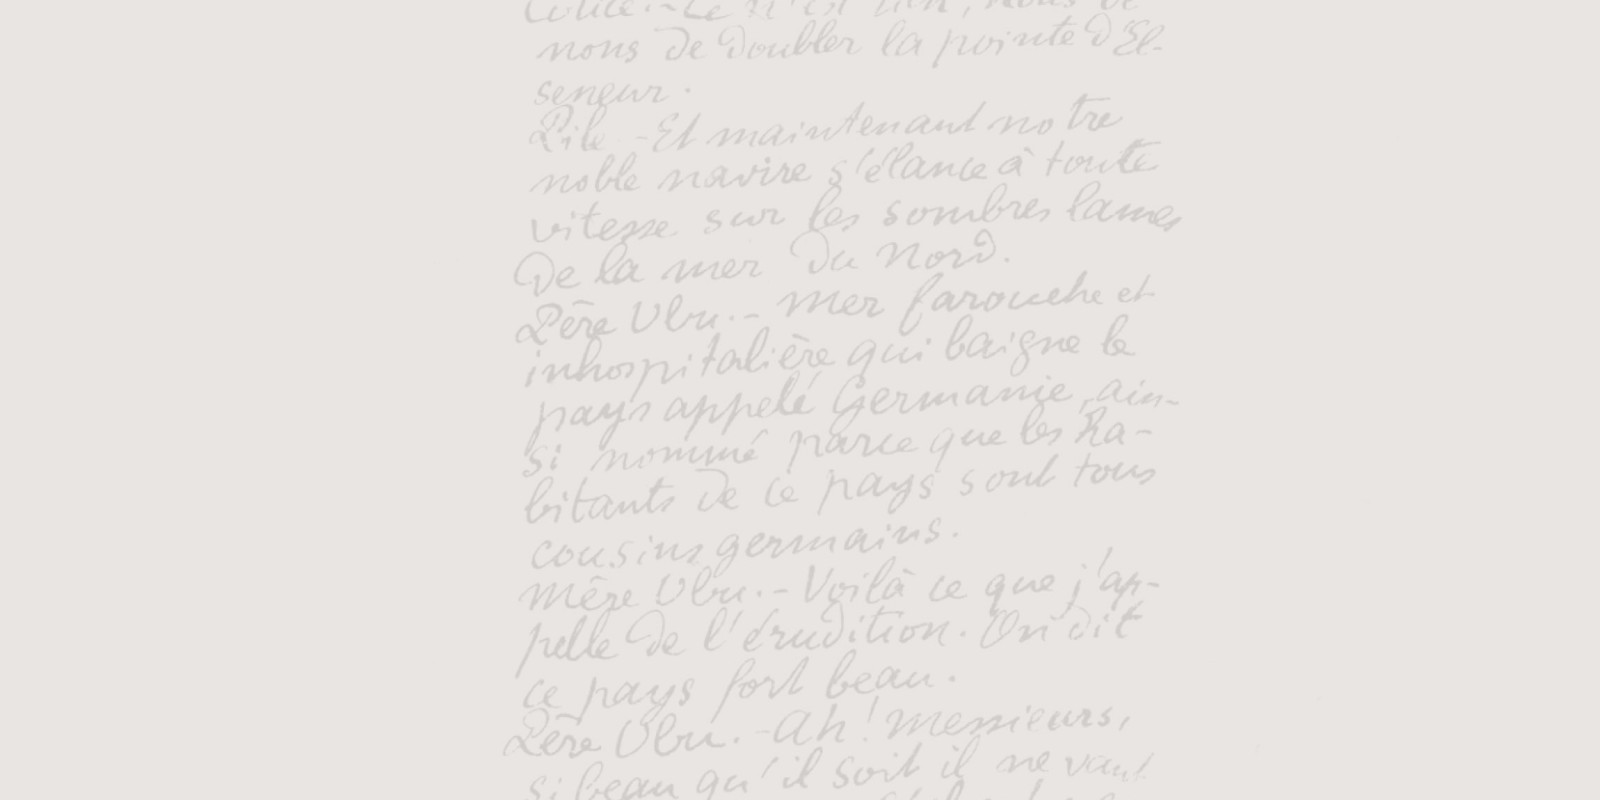 nons de doubler la pointe d'El-
seneur.
Pile - Et maintenant notre
noble navire s'élance à toute
vitesse sur les sombres lames
de la mer du Nord.
Père Ubu. - Mer farouche et
inhospitalière qui baigne le
pays appelé Germanie, ain-
si nommé parce que les ha-
bitants de ce pays sont tous
cousins germains.
Mère Ubu. - Voilà ce que j'ap-
pelle de l'érudition. On dit
ce pays fort beau.
Père Ubu. - Ah! Messieurs,
si beau qu'il soit il ne vaut